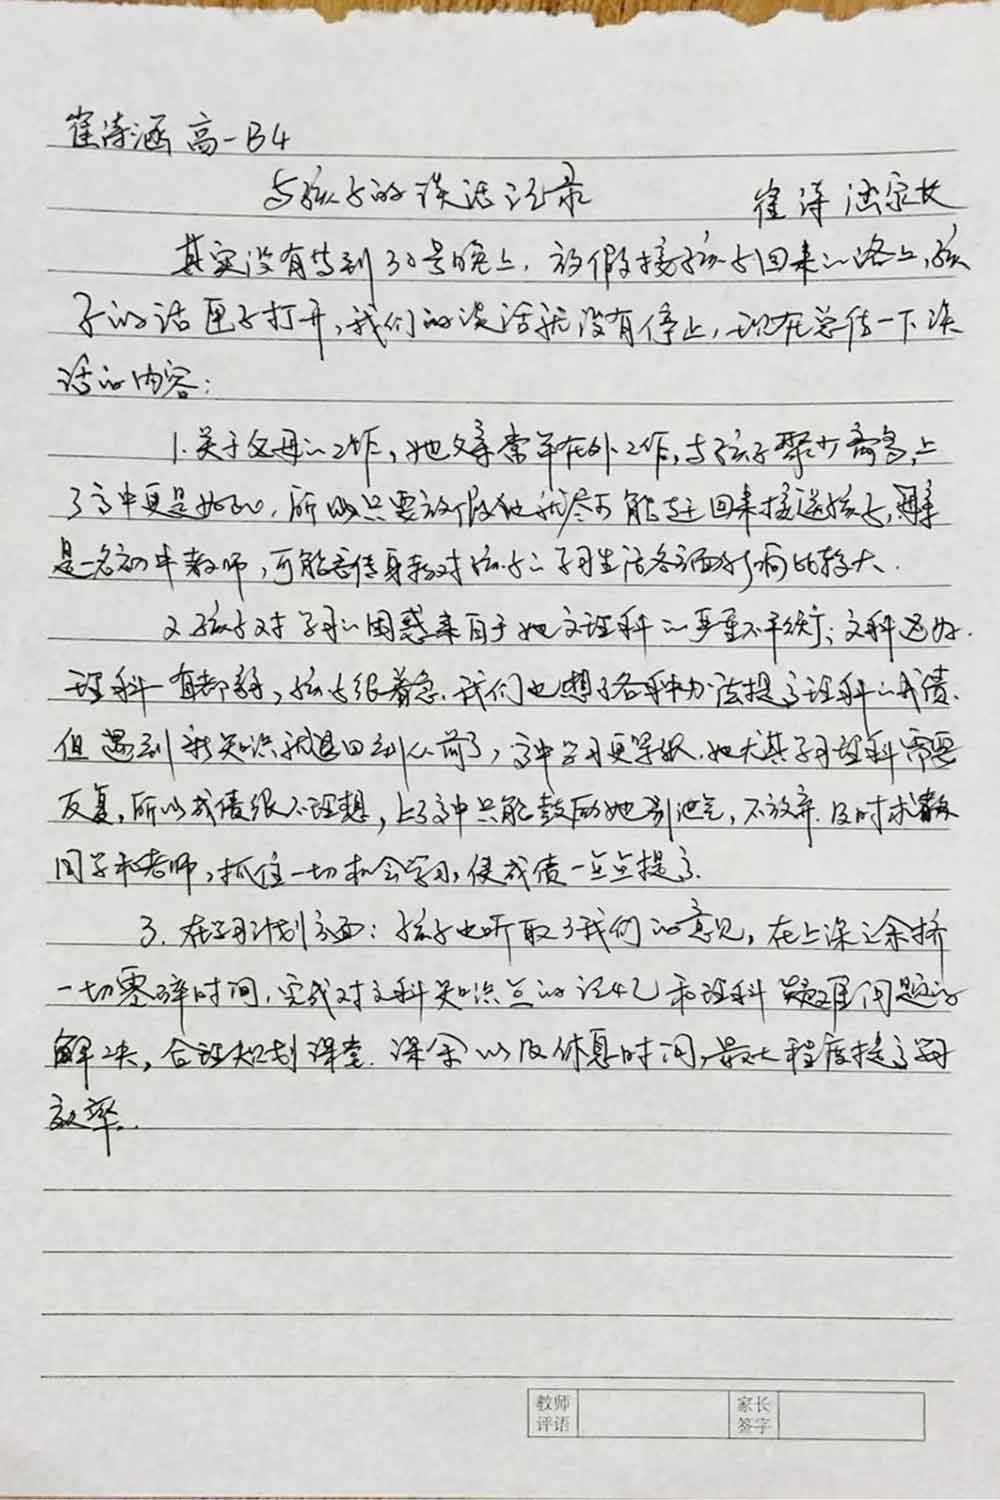 崔诗涵 高一B4
与孩子的谈话记录 崔诗涵家长
其实没有等到30号晚上，放假接孩子回来的路上，孩
子的话匣子打开，我们的谈话就没有停止，现在总结一下谈
话的内容：
1.关于父母的工作，她父亲常年在外工作，与孩子聚少离多，上
了高中更是如此，所以只要放假他就尽可能赶回来接送孩子，
是一名初中教师，可能言传身教对孩子的学习生活各方面影响比较大．
2.孩子对学习的困惑来自于她文理科的严重不平衡；文科还好．
理科一直都弱，孩子很着急．我们也想了各种办法提高理科的成绩．
但遇到新知识就退回到从前了，高中学习更紧张．她尤其学习理科需要
反复，所以成绩很不理想，上了高中只能鼓励她别泄气，不放弃．及时求教
同学和老师，抓住一切机会学习，使成绩一点点提高．
3．在学习计划方面：孩子也听取了我们的意见，在上课之余挤
一切零碎时间，完成对文科知识点的记忆和理科疑难问题的
解决，合理规划课堂．课余以及休息时间，最大程度提高学习
效率．
教师
评语
家长
签字